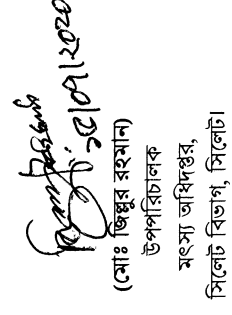 ১৫/০৭/২০২০
(মোঃ জিল্লুর রহমান)
উপপরিচালক
মৎস্য অধিদপ্তর,
সিলেট বিভাগ, সিলেট।